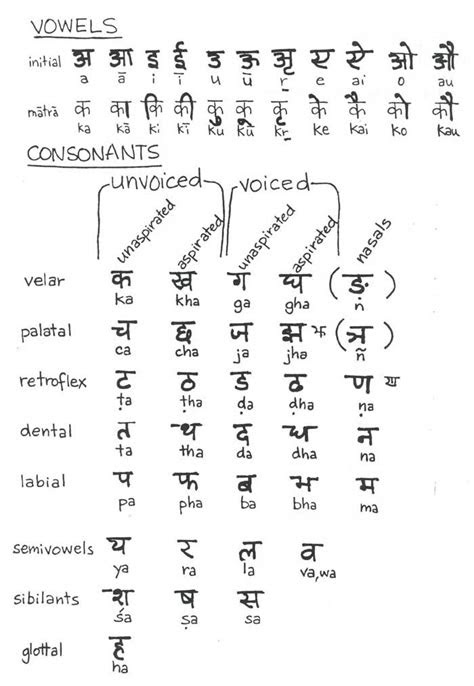 VOWELS
initial अ आ इ ई उ ऊ ऋ ए ऐ ओ औ
a ā i ī u ū r̲ e ai o au
mātrā क का कि की कु कू कृ के कै को कौ
ka kā ki kī ku kū kr̲ ke kai ko kau
CONSONANTS
unvoiced voiced
unaspirated aspirated unaspirated aspirated nasals
velar क ख ग घ (ङ)
ka kha ga gha ṅ
palatal च छ ज झ (ञ)
ca cha ja jha ñ
retroflex ट ठ ड ढ ण
ṭa ṭha ḍa ḍha ṇa
dental त थ द ध न
ta tha da dha na
labial प फ ब भ म
pa pha ba bha ma
semivowels य र ल व
ya ra la va,wa
sibilants श ष स
śa ṣa sa
glottal ह
ha